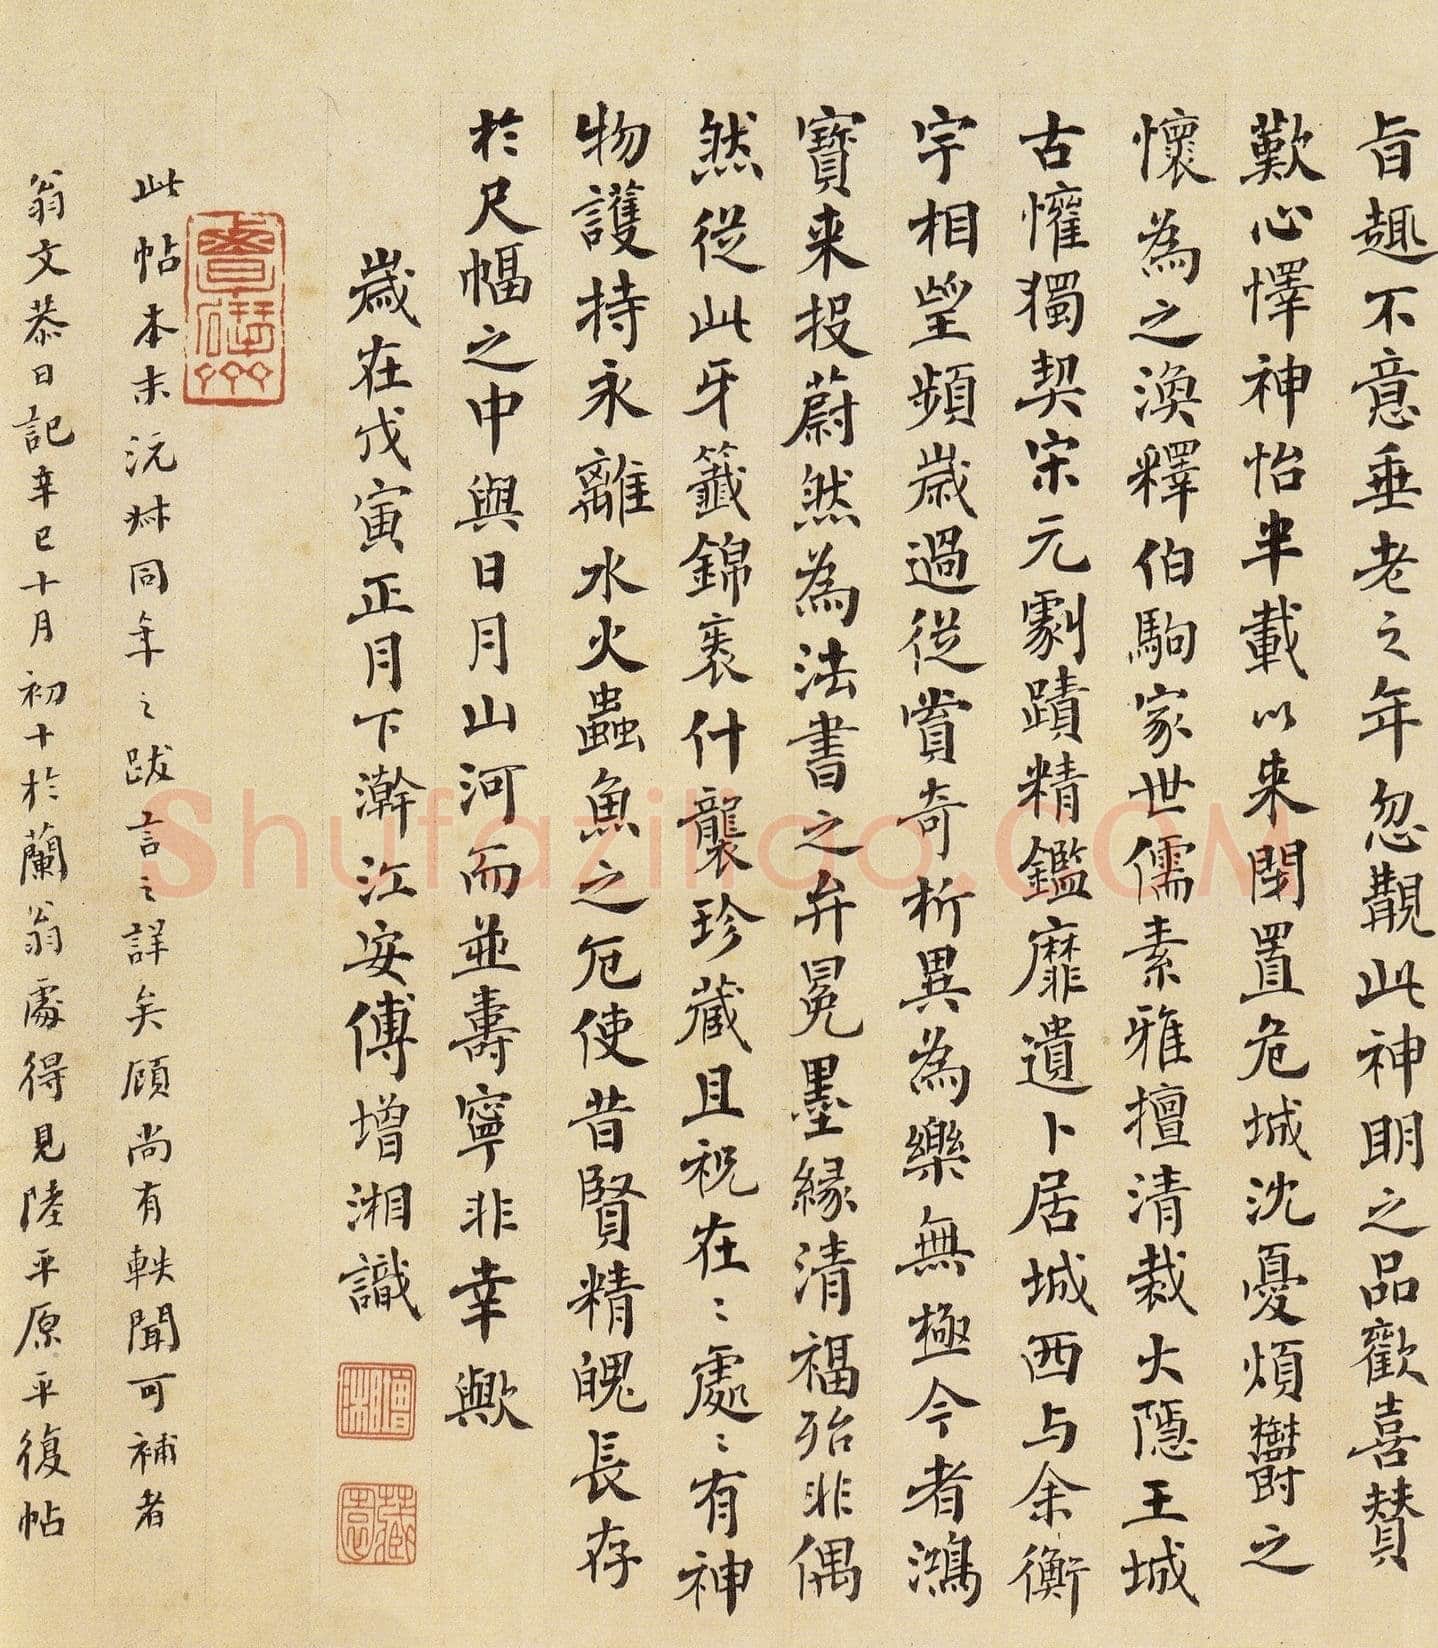 旨趣不意垂老之年忽覩此神明之品歡喜贊
歎心懌神怡半載以来閉置危城沈憂煩鬱之
懷為之渙釋伯駒家世儒素雅擅清裁大隱王城
古懽獨契宋元劇蹟精鑑靡遺卜居城西与余衡
宇相望頻歲過從賞奇析異為樂無極今者鴻
寶来投蔚然為法書之弁冕墨緣清福殆非偶
然從此牙籤錦裹什襲珍藏且祝在〻處〻有神
物護持永離水火蟲魚之厄使昔賢精魄長存
於尺幅之中與日月山河而並壽寧非幸歟
歲在戊寅正月下澣江安傅增湘識
增湘
藏園
此帖本末沅叔同年之跋言之詳矣顧尚有軼聞可補者
翁文恭日記辛巳十月初十於蘭翁處得見陸平原平復帖
shufaziliao.COM